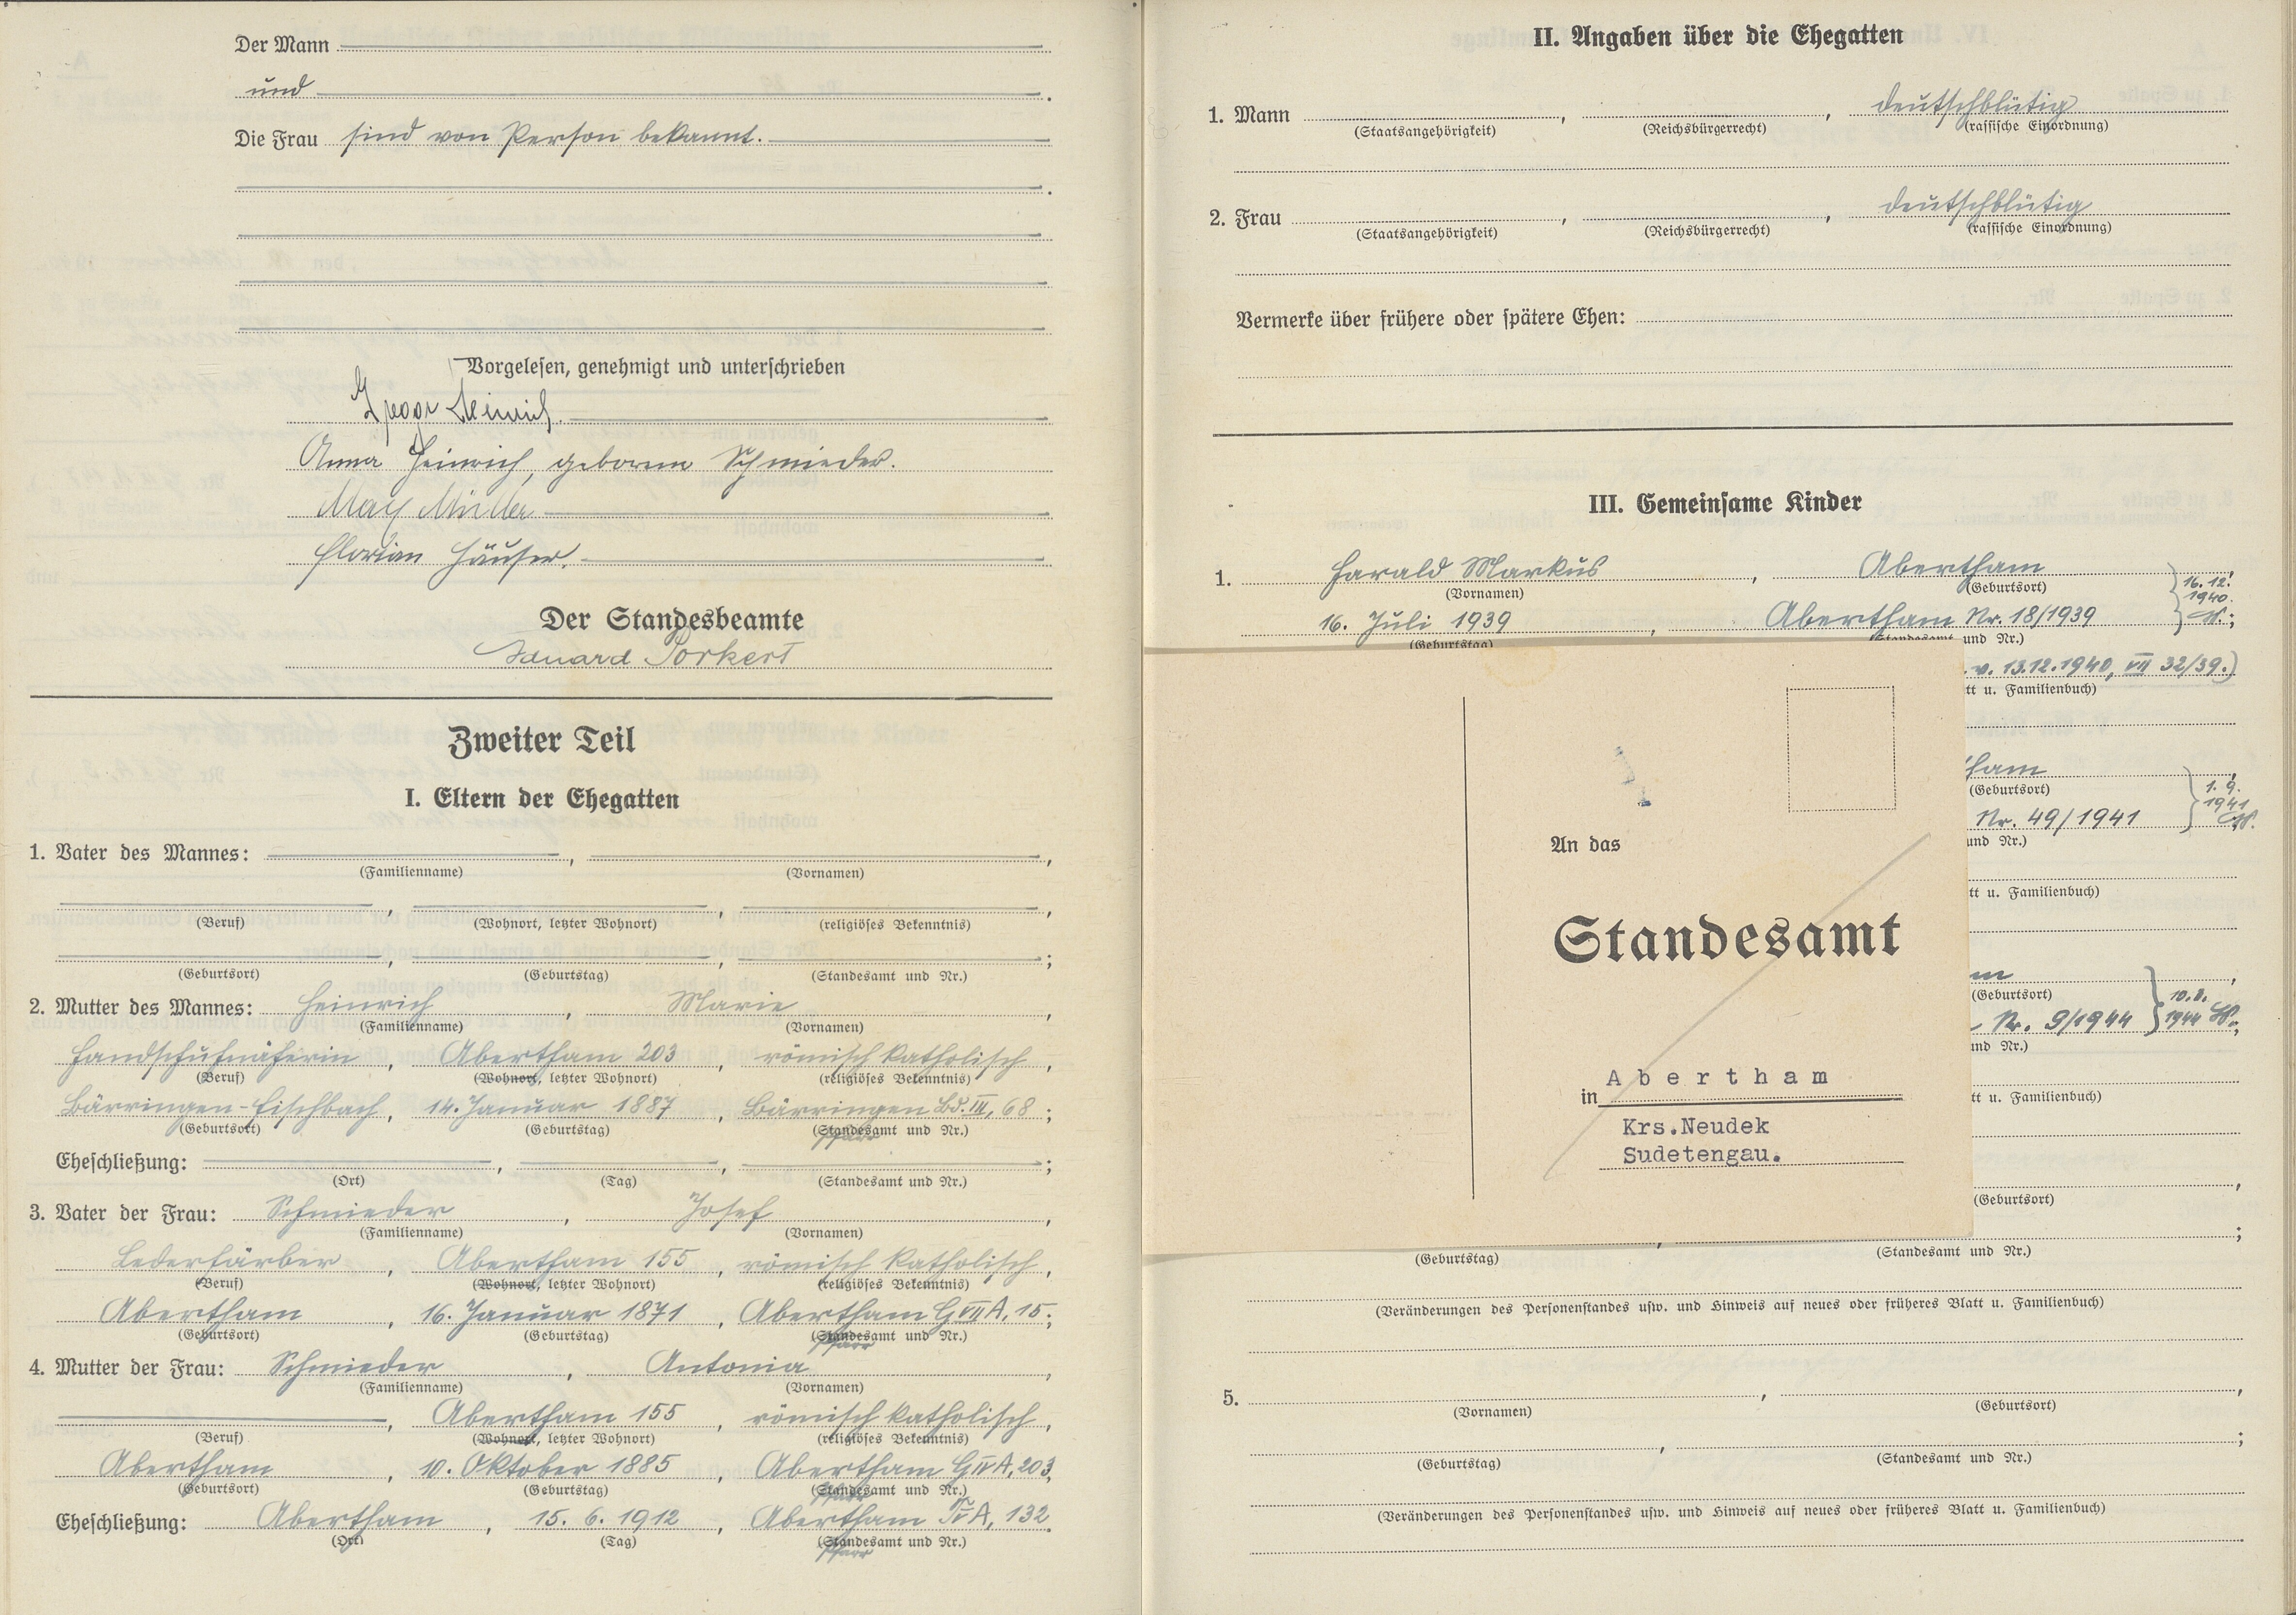 Der Mann
und
Die Frau sind von Person bekannt.
Vorgelesen, genehmigt und unterschrieben
Heinrich.
Anna Heinrich, geborene Schmieder.
Max Müller
Florian Häuser.
Der Standesbeamte
Eduard Porkert
Zweiter Teil
I. Eltern der Ehegatten
1. Vater des Mannes: , ,
(Familienname) (Vornamen)
, , ,
(Beruf) (Wohnort, letzter Wohnort) (religiöses Bekenntnis)
, , ;
(Geburtsort) (Geburtstag) (Standesamt und Nr.)
2. Mutter des Mannes: Heinrich, Marie,
(Familienname) (Vornamen)
Handschuhnäherin, Abertham 203, römisch katholisch,
(Beruf) (Wohnort, letzter Wohnort) (religiöses Bekenntnis)
Bärringen-Fischbach, 14. Januar 1887, Bärringen Bd. III, 68;
(Geburtsort) (Geburtstag) (Standesamt und Nr.)
Pfarr
Eheschließung: , , ;
(Ort) (Tag) (Standesamt und Nr.)
3. Vater der Frau: Schmieder, Josef,
(Familienname) (Vornamen)
Lederfärber, Abertham 155, römisch katholisch,
(Beruf) (Wohnort, letzter Wohnort) (religiöses Bekenntnis)
Abertham, 16. Januar 1871, Abertham G VII A, 15;
(Geburtsort) (Geburtstag) (Standesamt und Nr.)
Pfarr
4. Mutter der Frau: Schmieder, Antonia,
(Familienname) (Vornamen)
, Abertham 155, römisch katholisch,
(Beruf) (Wohnort, letzter Wohnort) (religiöses Bekenntnis)
Abertham, 10. Oktober 1885, Abertham G IV A, 203,
(Geburtsort) (Geburtstag) (Standesamt und Nr.)
Pfarr
Eheschließung: Abertham, 15. 6. 1912, Abertham A, 132
(Ort) (Tag) (Standesamt und Nr.)
Pfarr
II. Angaben über die Ehegatten
1. Mann , , deutschblütig
(Staatsangehörigkeit) (Reichsbürgerrecht) (rassische Einordnung)
2. Frau , , deutschblütig
(Staatsangehörigkeit) (Reichsbürgerrecht) (rassische Einordnung)
Vermerke über frühere oder spätere Ehen:
III. Gemeinsame Kinder
1. Harald Markus, Abertham,
(Vornamen) (Geburtsort)
16. 12.
1940.
16. Juli 1939, Abertham Nr. 18/1939;
(Geburtstag) (Standesamt und Nr.)
. v. 13.12.1940, VII 32/39.)
tt u. Familienbuch)
ham,
(Geburtsort)
1. 9.
1941
Nr. 49/1941
und Nr.)
tt u. Familienbuch)
m,
(Geburtsort)
10. 8.
1944
Nr. 9/1944
und Nr.)
tt u. Familienbuch)
(Geburtsort)
An das
Standesamt
in Abertham
Krs.Neudek
Sudetengau.
, ;
(Geburtstag) (Standesamt und Nr.)
(Veränderungen des Personenstandes usw. und Hinweis auf neues oder früheres Blatt u. Familienbuch)
5. , ,
(Vornamen) (Geburtsort)
, ;
(Geburtstag) (Standesamt und Nr.)
(Veränderungen des Personenstandes usw. und Hinweis auf neues oder früheres Blatt u. Familienbuch)